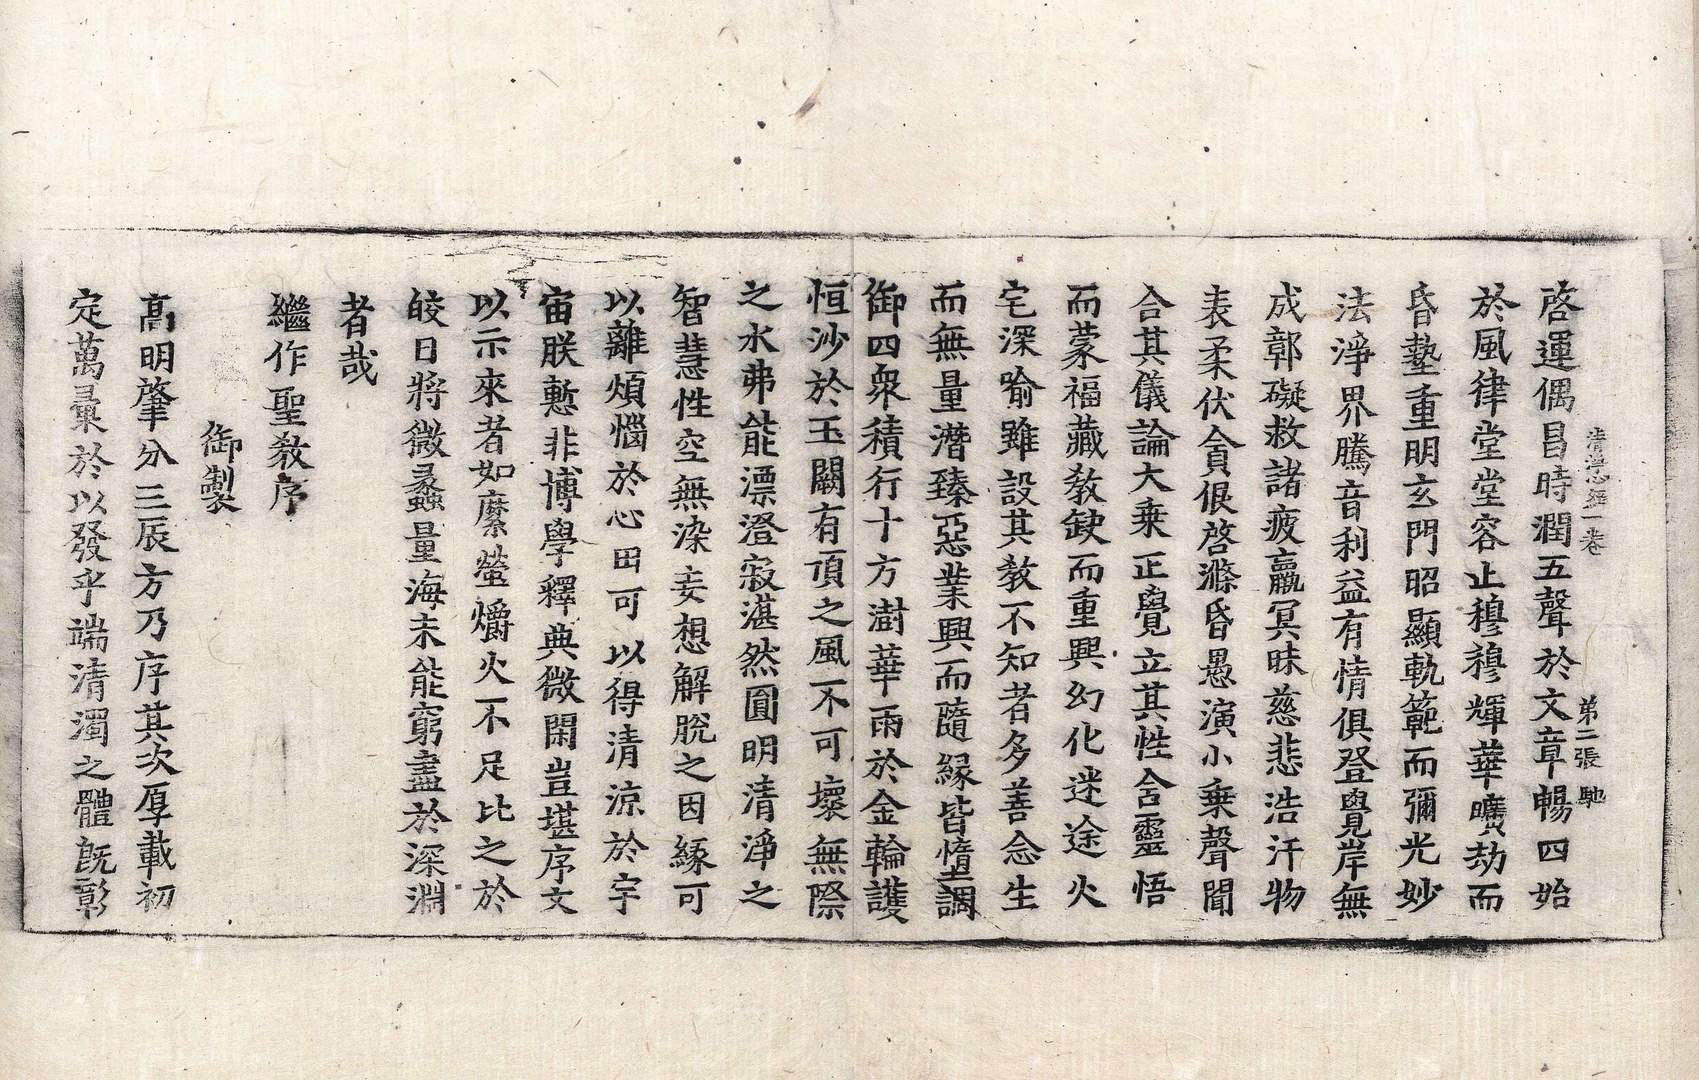 清淨心經一卷　第二張　馳
啓運偶昌時潤五聲於文章暢四始
於風律堂堂容止穆穆輝華曠劫而
昏墊重明玄門昭顯軌範而彌光妙
法淨界騰音利益有情俱登覺岸無
成鄣礙救諸疲羸冥昧慈悲浩汗物
表柔伏貪佷啓滌昏愚演小乗聲聞
合其儀論大乗正覺立其性含靈悟
而蒙福藏教缺而重興幻化迷途火
宅深喻雖設其教不知者多善念生
而無量潛臻惡業興而隨緣皆墮調
御四衆積行十方澍華雨於金輪護
恒沙於玉闕有頂之風不可壞無際
之水弗能漂澄寂湛然圓明清淨之
智慧性空無染妄想解脫之因緣可
以離煩惱於心田可以得清涼於宇
宙朕慙非博學釋典微閑豈堪序文
以示來者如縻螢爝火不足比之於
皎日將微蠡量海未能窮盡於深淵
者哉
繼作聖教序
御製
高明肇分三辰方乃序其次厚載初
定萬彙於以發乎端清濁之體旣彰